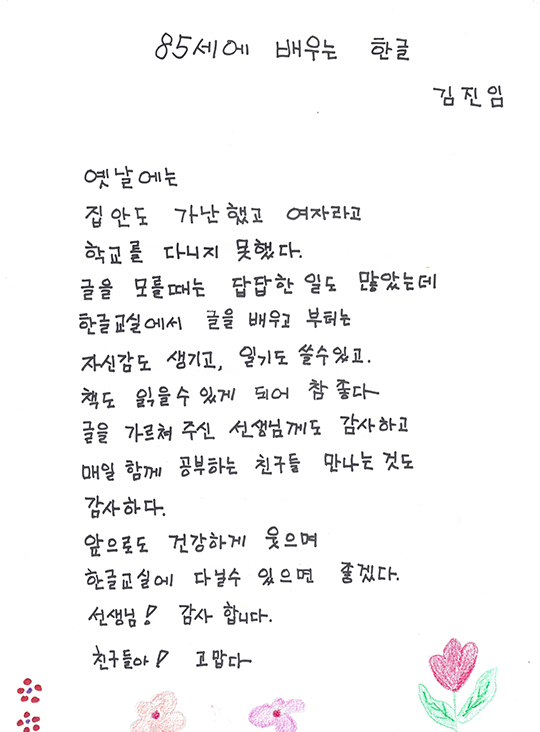 85세에 배우는 한글
김진임
옛날에는
집안도 가난했고 여자라고
학교를 다니지 못했다.
글을 모를때는 답답한 일도 많았는데
한글교실에서 글을 배우고 부터는
자신감도 생기고, 일기도 쓸수있고.
책도 읽을수 있게 되어 참 좋다
글을 가르쳐 주신 선생님께도 감사하고
매일 함께 공부하는 친구들 만나는 것도
감사하다.
앞으로도 건강하게 웃으며
한글교실에 다닐수 있으면 좋겠다.
선생님! 감사 합니다.
친구들아! 고맙다